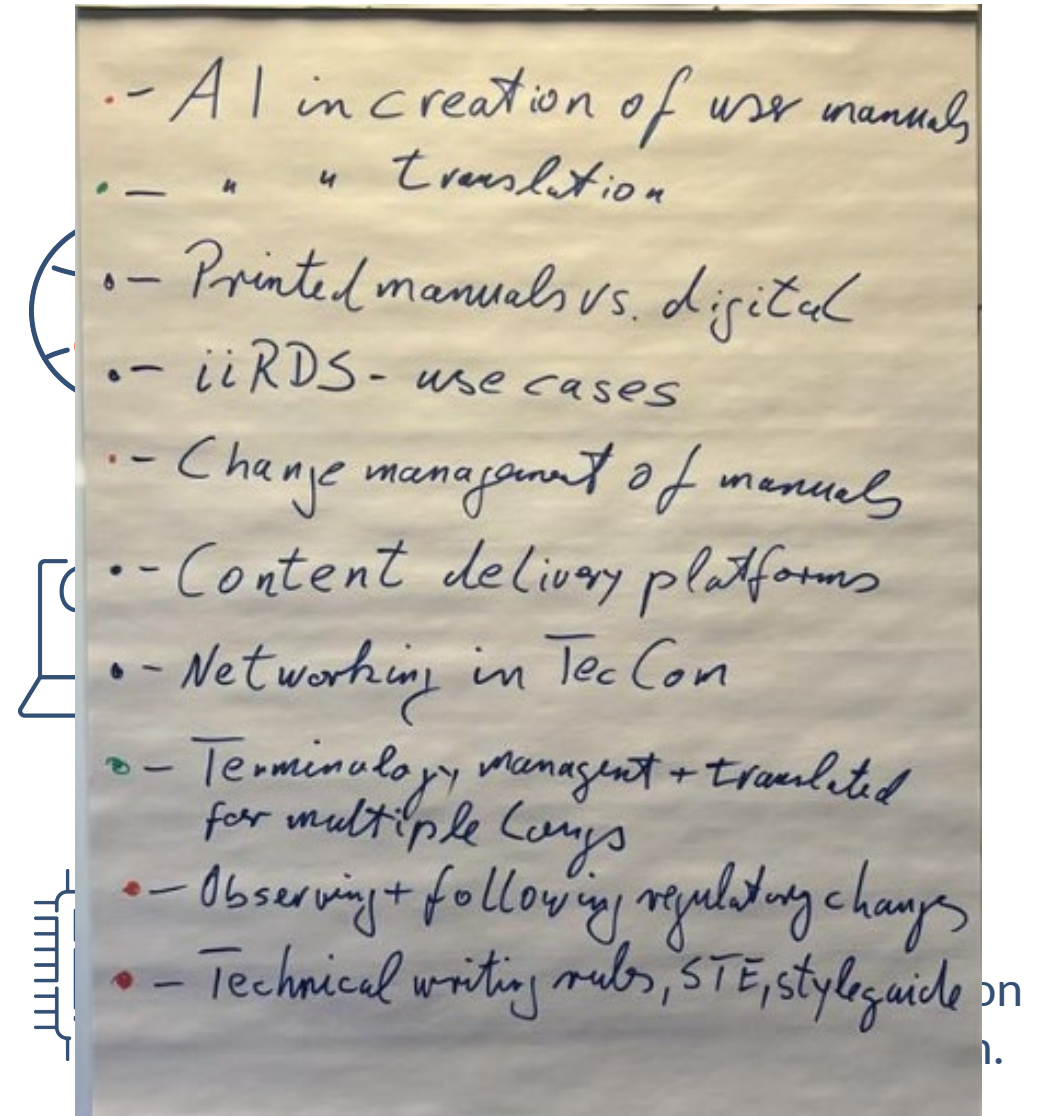 - AI in creation of user manuals
- " " translation
- Printed manuals vs. digital
- iiRDS - use cases
- Change management of manuals
- Content delivery platforms
- Networking in TecCom
- Terminology managent + translated
for multiple langs
- Observing + following regulatory changes
- Technical writing rules, STE, styleguide
on
n.